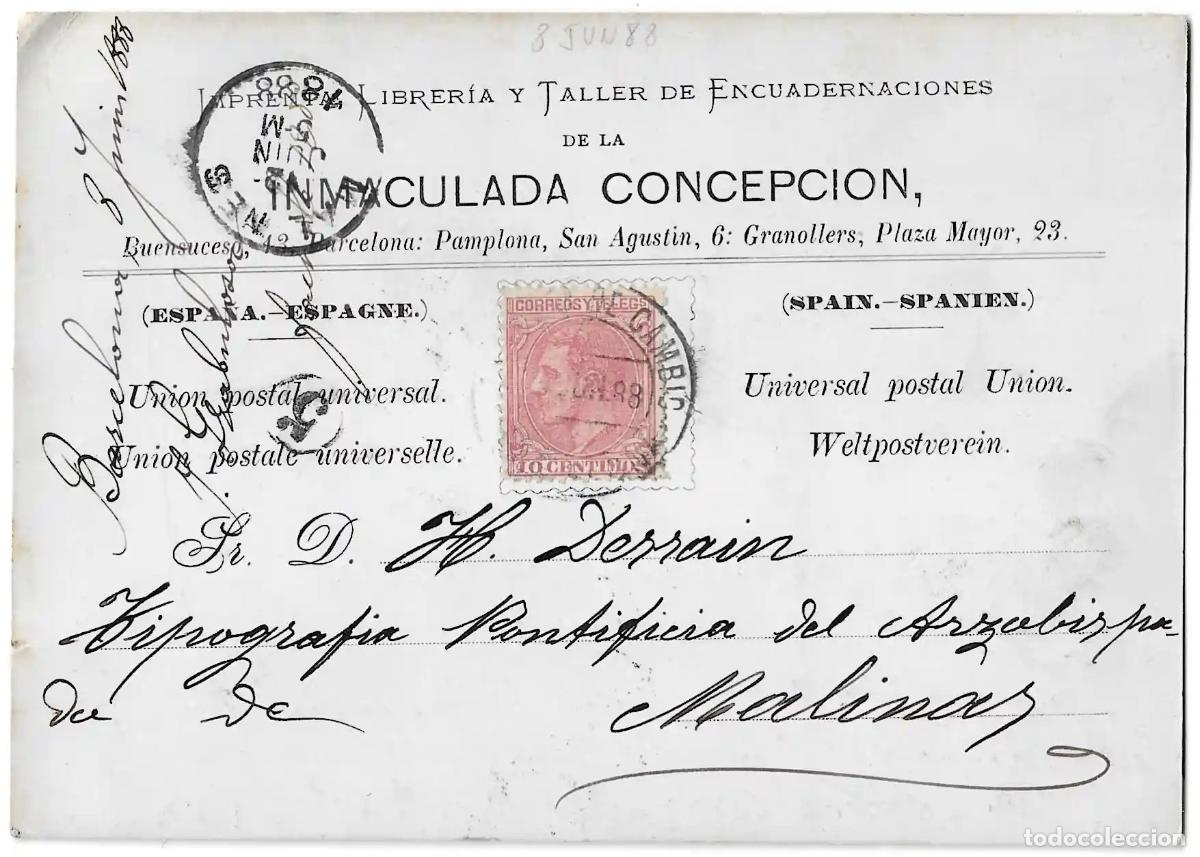 8 JUN 88
IMPRENTA, LIBRERÍA Y TALLER DE ENCUADERNACIONES
DE LA
INMACULADA CONCEPCION,
Buensuceso, 13, Barcelona: Pamplona, San Agustin, 6: Granollers, Plaza Mayor, 23.
(ESPAÑA.—ESPAGNE.)
(SPAIN.—SPANIEN.)
Union postal universal.
Union postale universelle.
Universal postal Union.
Weltpostverein.
CORREOS Y TELEGS
10 CENTIMOS
DE CAMBIO
JUN 88
5
Barcelona 8 Junio 1888
Sr. D. H. Dessain
Tipografia Pontificia del Arzobispa-
do De Malinas
todocoleccion